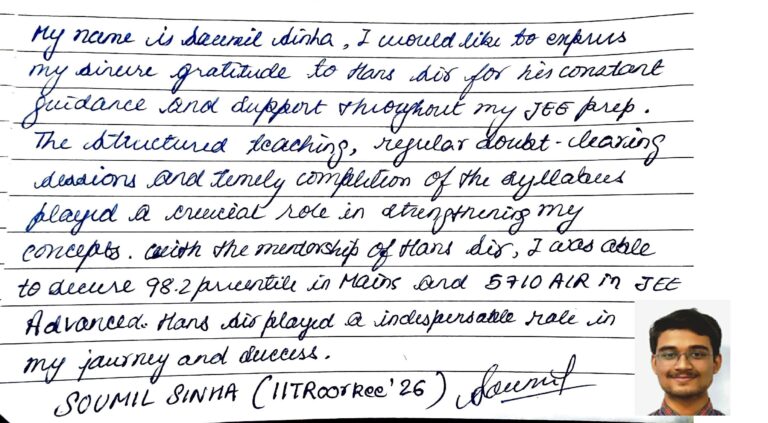 My name is Soumil Sinha, I would like to express
my sincere gratitude to Hans Sir for his constant
guidance and support throughout my JEE prep.
The structured teaching, regular doubt-clearing
sessions and timely completion of the syllabus
played a crucial role in strengthening my
concepts. with the mentorship of Hans Sir, I was able
to secure 98.2 percentile in Mains and 5710 AIR in JEE
Advanced. Hans Sir played a indespensable role in
my journey and success.
SOUMIL SINHA (IITRoorkee'26) Soumil